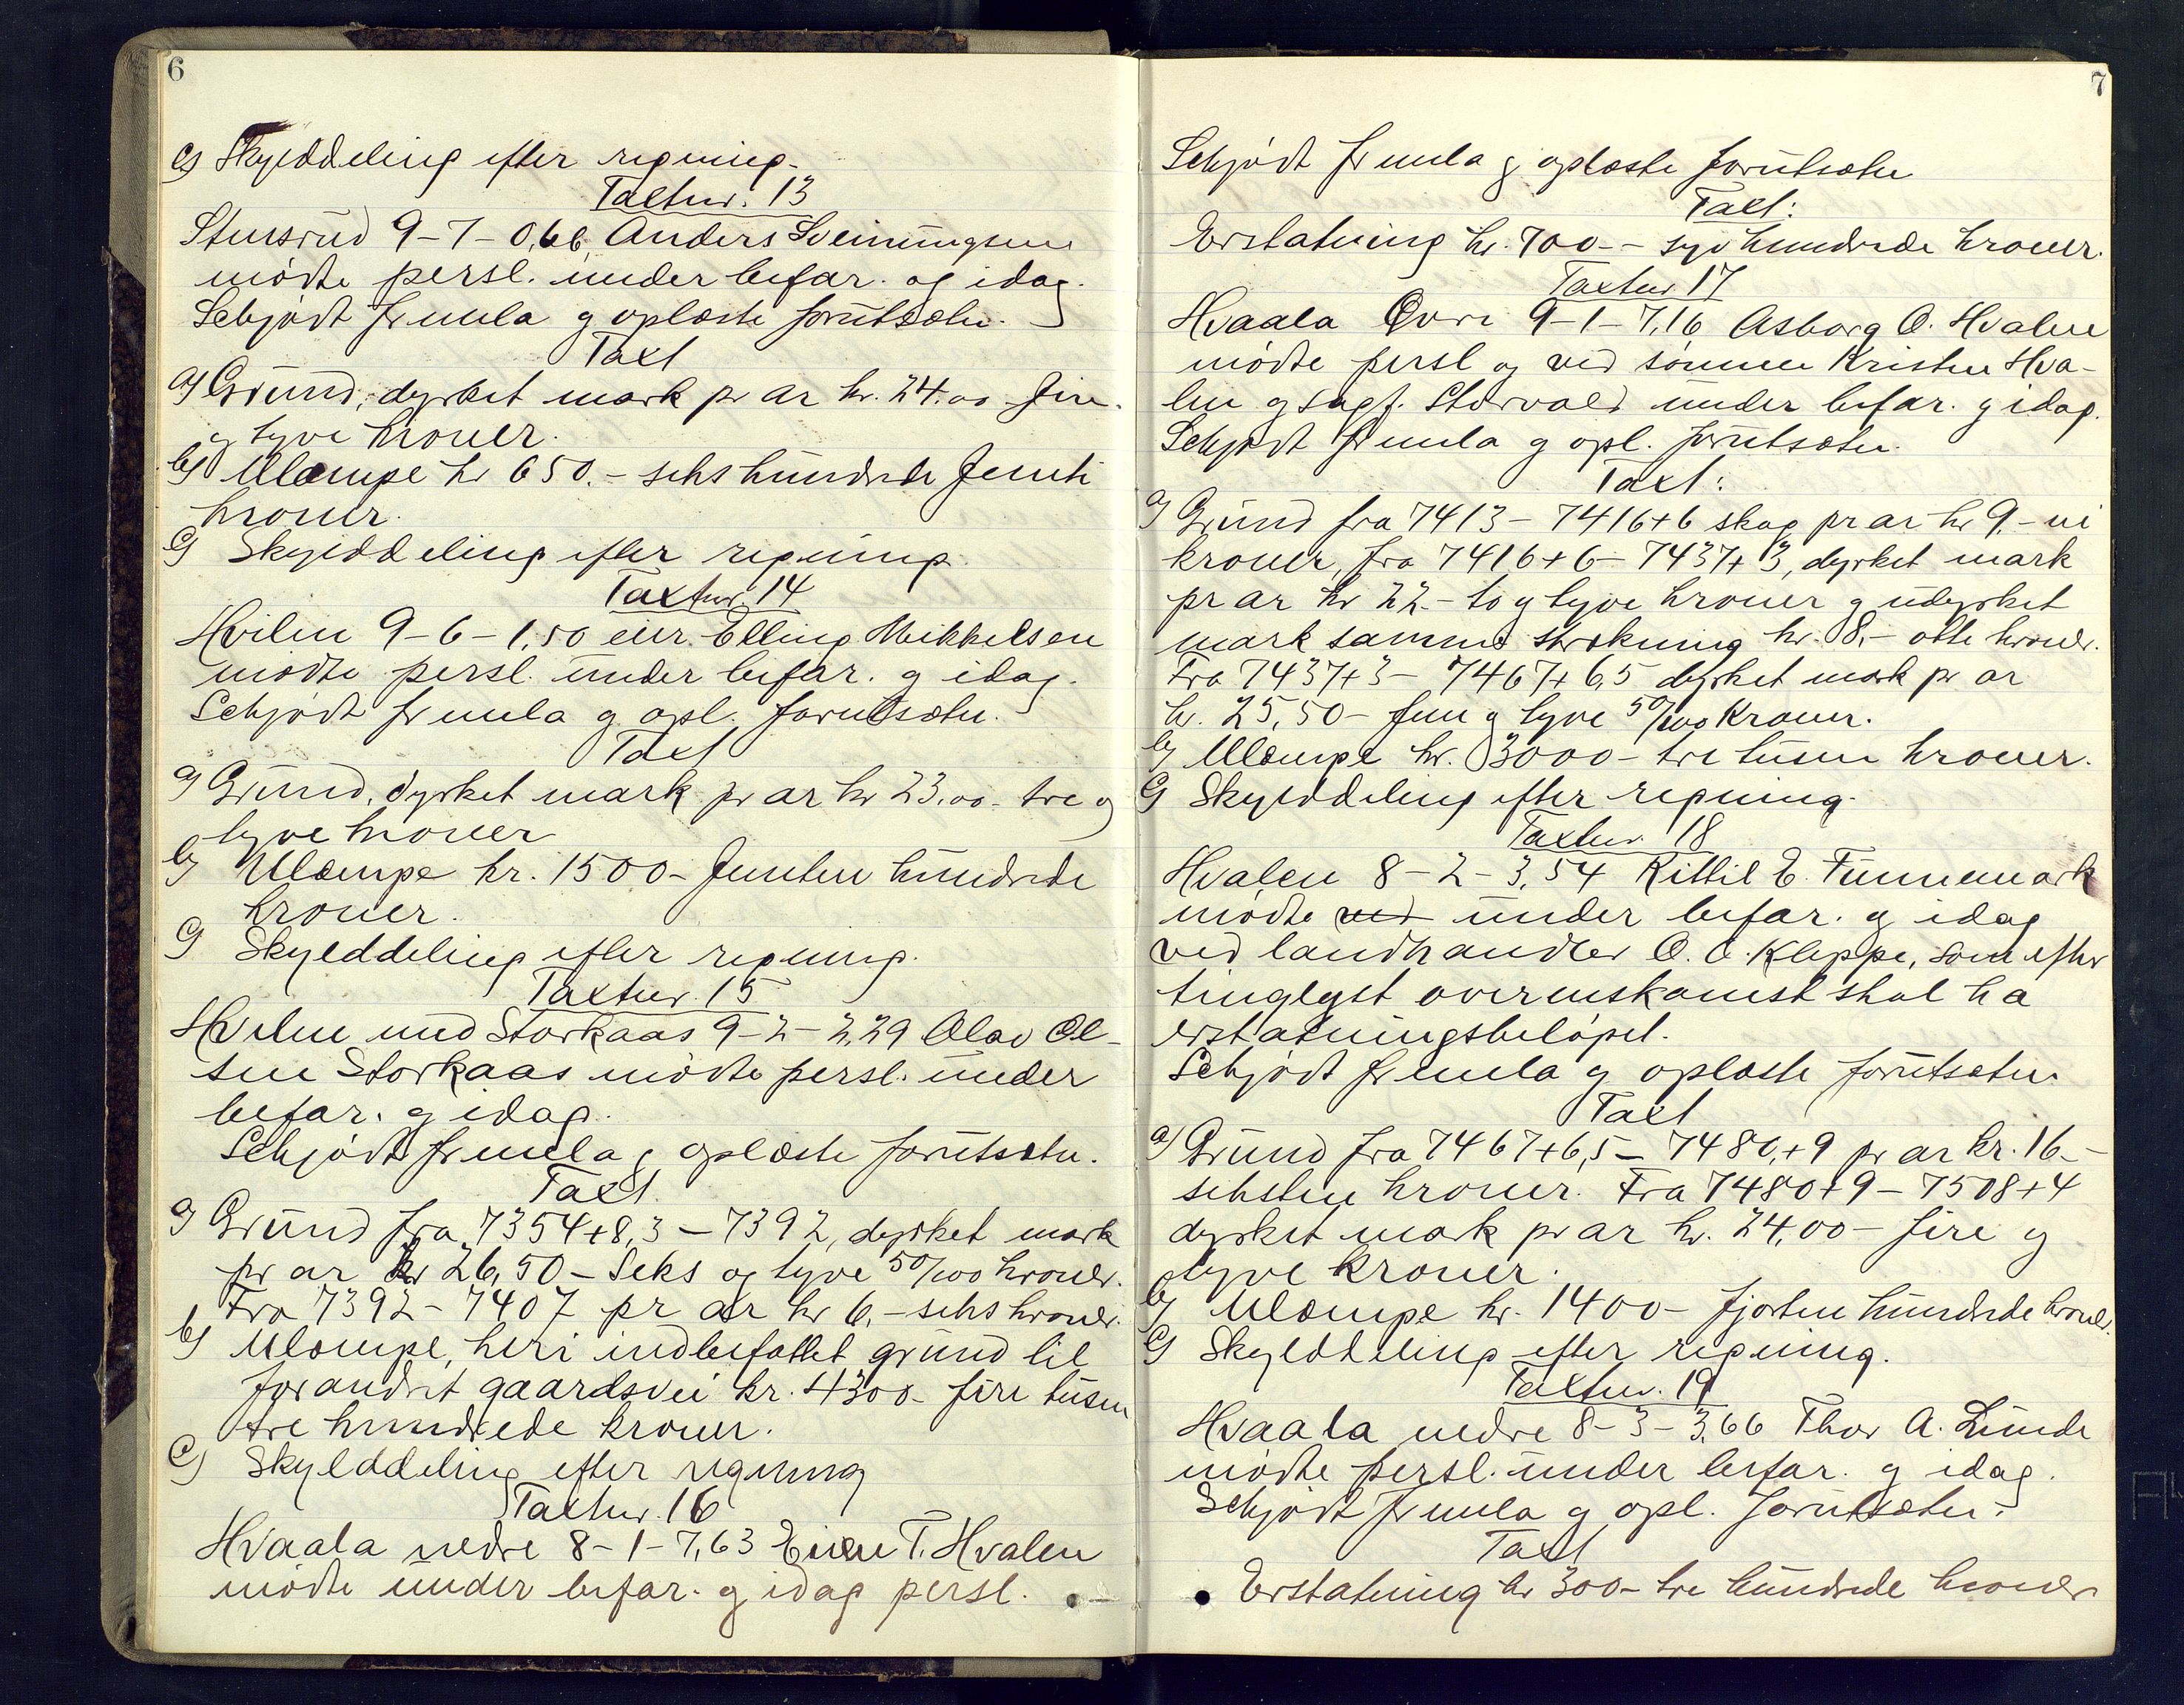 6
c) Skylddeling efter regning.
Taxtnr. 13
Stursrud 9-7-0,66 Anders Sveinungsen
mødte persl. under befar. og idag.
Schjødt frmla og oplæste forutsætn.
Taxt
a) Grund, dyrket mark pr ar kr. 24.00 fire
og tyve kroner.
b) Ulæmpe kr 650.- seks hundrede femti
kroner.
c) Skylddeling efter regning.
Taxtnr. 14
Hvilen 9-6-1,50 eier Elling Mikkelsen
mødte persl. under befar. og idag.
Schjødt frmla og opl. forutsætn.
Taxt
a) Grund, dyrket mark pr ar kr 23,00- tre og
tyve kroner
b) Ulæmpe kr. 1500- femten hundrede
kroner.
c) Skylddeling efter regning.
Taxtnr. 15
Hvilen med Storkaas 9-2-2,29 Olav Ol-
sen Storkaas mødte persl. under
befar. og idag.
Schjødt frmla og oplæste forutsætn.
Taxt
a) Grund fra 7354+8,3 - 7392, dyrket mark
pr ar kr 26,50 - Seks og tyve 50/100 kroner.
Fra 7392 - 7407 pr ar kr 6,- seks kroner.
b) Ulæmpe, heri indbefattet grund til
forandret gaardsvei kr. 4300- fire tusen
tre hundrede kroner.
c) Skylddeling efter regning
Taxtnr. 16
Hvaala nedre 8-1-7,63 T. Hvalen
mødte under befar. og idag persl.
7
Schjødt frmla og oplæste forutsætn
Taxt:
Erstatning kr. 700.- syv hundrede kroner.
Taxtnr 17
Hvaala Øvre 9-1-7,16 Asborg O. Hvalen
mødte persl og ved sønnen Kristen Hva-
len og sagf. Storvald under befar. og idag.
Schjødt frmla og opl. forutsætn.
Taxt:
a) Grund fra 7413 - 7416+6 skog pr ar kr 9,- ni
kroner, fra 7416+6 - 7437+3, dyrket mark
pr ar kr 22.- to og tyve kroner og udyrket
mark samme strækning kr. 8,- otte kroner.
Fra 7437+3 - 7467+6,5 dyrket mark pr ar
kr. 25,50 - fem og tyve 50/100 Kroner.
b) Ulæmpe kr. 3000 - tre tusen kroner.
c) Skylddeling efter regning.
Taxtnr. 18
Hvalen 8-2-3,54 Kittil E. Funnemark
mødte ved under befar. og idag
ved landhandler O. O. Kleppe, som efter
tinglyst overenskomst skal ha
erstatningsbeløpet.
Schjødt frmla og oplæste forutsætn.
Taxt
a) Grund fra 7467+6,5 - 7480+9 pr ar kr. 16.-
seksten kroner. Fra 7480+9 - 7508+4
dyrket mark pr ar kr. 24,00 - fire og
tyve kroner.
b) Ulæmpe kr. 1400 - fjorten hundrede kroner.
c) Skylddeling efter regning.
Taxtnr. 19
Hvaala nedre 8-3-3,66 Thor A. Lunde
mødte persl. under befar. og idag.
Schjødt frmla og opl. forutsætn.
Taxt
Erstatning kr 300 - tre hundrede kroner